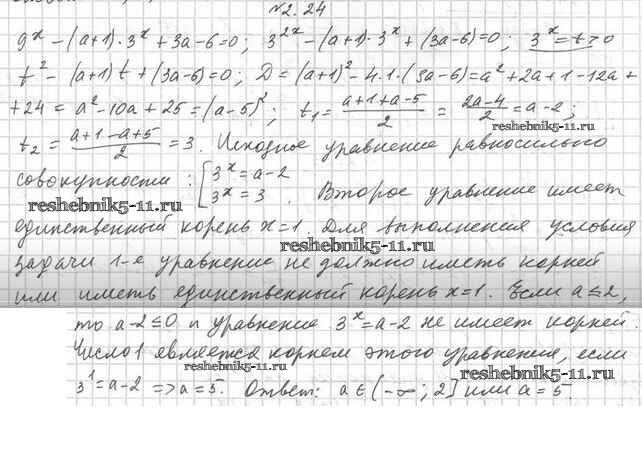 №2. 24
9^x - (a+1)·3^x + 3a-6=0; 3^{2x} - (a+1)·3^x + (3a-6)=0; 3^x = t > 0
t^2 - (a+1)t + (3a-6)=0; D = (a+1)^2 - 4·1·(3a-6) = a^2 + 2a + 1 - 12a +
+24 = a^2 - 10a + 25 = (a-5)^2; t_1 = (a+1+a-5)/2 = (2a-4)/2 = a-2;
reshebnik5-11.ru
t_2 = (a+1-a+5)/2 = 3. Исходное уравнение равносильно
совокупности: [3^x = a-2
3^x = 3 . Второе уравнение имеет
reshebnik5-11.ru
единственный корень x=1. Для выполнения условия
reshebnik5-11.ru
задачи 1-е уравнение не должно иметь корней
или иметь единственный корень x=1. Если a≤2,
то a-2≤0 и уравнение 3^x = a-2 не имеет корней.
Число 1 является корнем этого уравнения, если
reshebnik5-11.ru
3^1 = a-2 => a=5. Ответ: a∈(-∞; 2] или a=5.
reshebnik5-11.ru